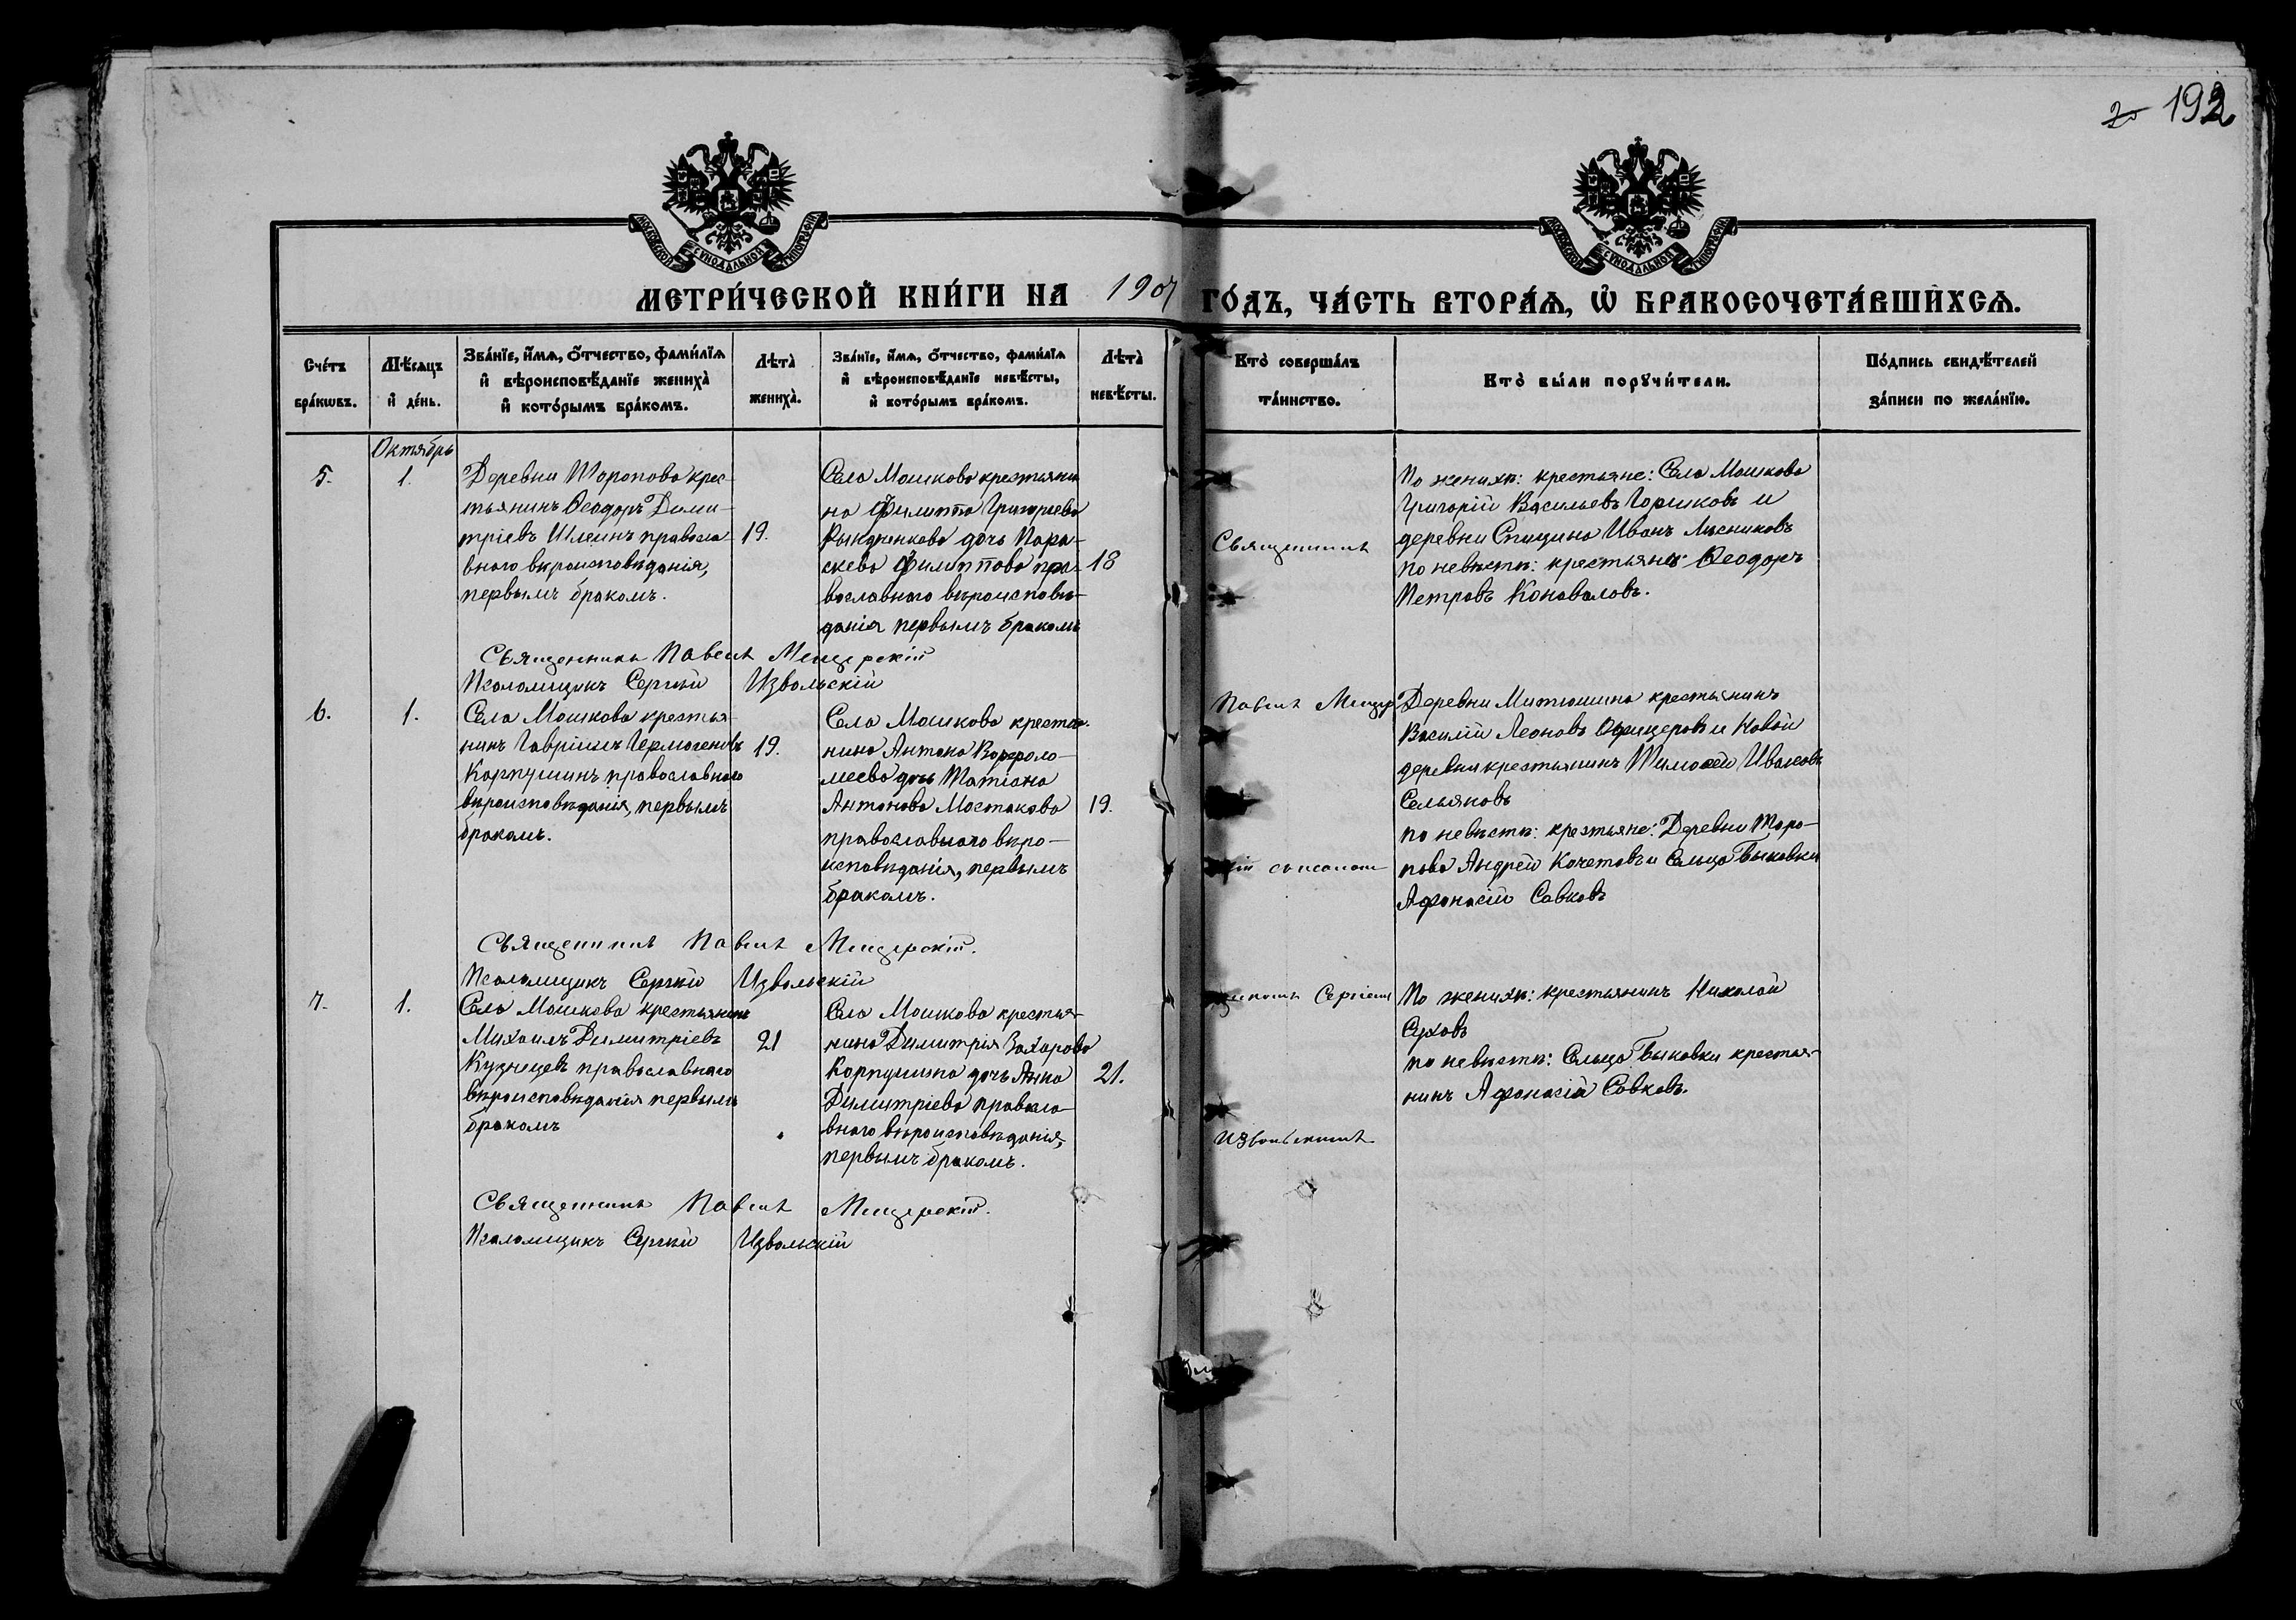 192
МЕТРИ́ЧЕСКОЙ КНИ́ГИ НА 1907 ГО́ДЪ, ЧА́СТЬ ВТОРА́Ѧ, Ѡ҆ БРАКОСОЧЕТА́ВШИХСѦ.
Сче́тъ бра́кѡвъ.
Мѣ́сѧцъ и҆ де́нь.
Зва́нїе, и҆́мѧ, ѻ҆́тчество, фами́лїѧ
и҆ вѣроисповѣ́данїе жениха̀
и҆ кото́рымъ бра́комъ.
Лѣта̀ жениха̀.
Зва́нїе, и҆́мѧ, ѻ҆́тчество, фами́лїѧ
и҆ вѣроисповѣ́данїе невѣ́сты,
и҆ кото́рымъ бра́комъ.
Лѣта̀ невѣ́сты.
Кто̀ соверша́лъ
та́инство.
Кто̀ бы́ли порꙋчи́тели.
По́дпись свидѣ́телей
за́писи по жела́нїю.
Октябрь
5.
1.
Деревни Торопово крес-
тьянинъ Ѳеодоръ Дими-
тріевъ Шлеинъ правосла-
внаго вѣроисповѣданія,
первымъ бракомъ.
19.
Села Мошкова крестьяни
на Филиппа Григорьева
дочь Пара-
скева Филиппова пра-
вославнаго вѣроисповѣ-
данія первымъ бракомъ
18
Священникъ
По женихѣ: крестьяне: Села Мошкова
Григорій Васильевъ Горшковъ и
деревни Спицино Иванъ Лисниковъ
по невѣстѣ: крестьянъ Ѳеодоръ
Петровъ Коноваловъ.
Священникъ Павелъ Мещерскій
Псаломщикъ Сергѣй Извольскій
6.
1.
Села Мошкова крестья-
нинъ Гавріилъ Гермогеновъ
Карпушинъ православнаго
вѣроисповѣданія, первымъ
бракомъ.
19.
Села Мошкова крестья-
нина Антона Варфоло-
меева дочь Татіана
Антонова Мостакова
православнаго вѣро-
исповѣданія, первымъ
бракомъ.
19.
Павелъ Мещер
Деревни Митюшино крестьянинъ
Василій Леоновъ Офицеровъ и Новой
деревни крестьянинъ Тимоѳей Ивановъ
Сельяновъ
по невѣстѣ: крестьяне: Деревни Торо-
пово Андрей Кочетовъ и Сельца Быковки
Афонасій Савковъ
скій съ псалом
Священникъ Павелъ Мещерскій.
Псаломщикъ Сергѣй Извольскій
7.
1.
Села Мошкова крестьянинъ
Михаилъ Димитріевъ
Кузнецовъ православнаго
вѣроисповѣданія первымъ
бракомъ
21
Села Мошкова крестья-
нина Димитрія Захарова
Карпушина дочь Анна
Димитріева правосла-
внаго вѣроисповѣданія,
первымъ бракомъ.
21.
щикомъ Сергіемъ
По женихѣ: крестьянинъ Николай
Суховъ
по невѣстѣ: Сельца Быковки крестья-
нинъ Афонасій Савковъ.
Извольскимъ
Священникъ Павелъ Мещерскій.
Псаломщикъ Сергѣй Извольскій